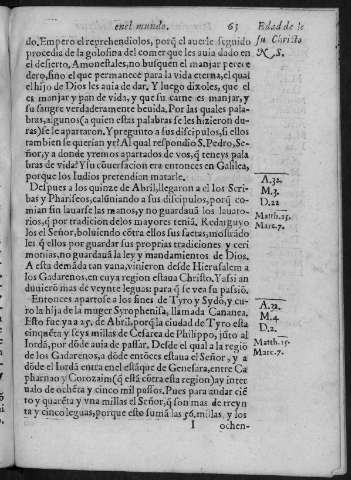 enel mundo. 63
Edad de
su Christo
N. S.
do. Empero el reprehendiolos, porq̃ el auerle seguido
procedia de la golosina del comer que les auia dado en
el desierto. Amonestales, no busquen el manjar perece
dero, sino el que permanece para la vida eterna, el qual
el hijo de Dios les auia de dar. Y luego dizoles, que el
es manjar y pan de vida, y que su carne es manjar, y
su sangre verdaderamente beuida. Por las quales pala-
bras, algunos (a quien estas palabras se les hizieron du-
ras) se le apartaron. Y pregunto a sus discipulos, si ellos
tambien se querian yr? Al qual respondio S. Pedro, Se-
ñor, y a donde yremos apartados de vos, q̃ teneys pala
bras de vida? Y su cõuersacion era entonces en Galilea,
porque los Iudios pretendian matarle.
A.32.
M.3.
D.22
Matth.15.
Marc.7.
Despues a los quinze de Abril, llegaron a el los Scri-
bas y Phariseos, calũniando a sus discipulos, porq̃ co-
mian sin lauarse las manos, y no guardauã los lauato-
rios, q̃ por tradicion de los mayores teniã. Redarguyo
los el Señor, boluiendo cõtra ellos sus saetas, mostrãdo
les q̃ ellos por guardar sus proprias tradiciones y ceri
monias, no guardauã la ley y mandamientos de Dios.
A esta demãda tan vana, vinieron desde Hierusalem a
los Gadarenos, en cuya region estaua Christo. Y assi an
duuierõ mas de veynte leguas: para q̃ se vea su passiõ.
A.32.
M.4.
D.2.
Matth.15.
Marc.7.
Entonces apartose a los fines de Tyro y Sydõ, y cu-
ro la hija de la muger Syrophenisa, llamada Cananea.
Esto fue ya a 25. de Abril, porq̃ la ciudad de Tyro esta
cinquẽta y seys millas de Cesarea de Philippo, jũto al
Iordã, por dõde auia de passar. Desde el qual a la regiõ
de los Gadarenos, a dõde entõces estaua el Señor, y a
dõde el Iordã entra enel estãque de Genesara, entre Ca
pharnao y Corozaim (q̃ està cõtra esta region) ay inter
ualo de ochẽta y cinco mil passos. Pues para andar ciẽ
to y quarẽta y vna millas el Señor, q̃ son mas de treyn
ta y cinco leguas, porque esto sumã las 56. millas, y los
I ochen-